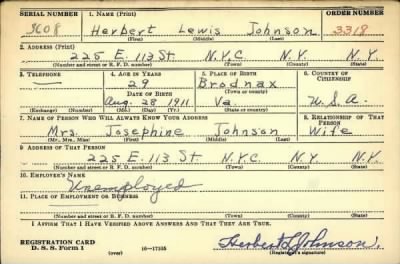 SERIAL NUMBER 1. NAME (Print) ORDER NUMBER
Herbert Lewis Johnson 3318
(First) (Middle) (Last)
2. ADDRESS (Print)
225 E. 113 St. N.Y.C N.Y. N.Y.
(Number and street or R. F. D. number) (Town) (County) (State)
3. TELEPHONE 4. AGE IN YEARS 5. PLACE OF BIRTH 6. COUNTRY OF CITIZENSHIP
29 Brodnax
DATE OF BIRTH (Town or county)
Aug. 28 1911 Va. U.S.A.
(Exchange) (Number) (Mo.) (Day) (Yr.) (State or country)
7. NAME OF PERSON WHO WILL ALWAYS KNOW YOUR ADDRESS 8. RELATIONSHIP OF THAT PERSON
Mrs. Josephine Johnson Wife
(Mr., Mrs., Miss) (First) (Middle) (Last)
9. ADDRESS OF THAT PERSON
225 E. 113 St. N.Y.C. N.Y. N.Y.
(Number and street or R. F. D. number) (Town) (County) (State)
10. EMPLOYER'S NAME
Unemployed
11. PLACE OF EMPLOYMENT OR BUSINESS
(Number and street or R. F. D. number) (Town) (County) (State)
I AFFIRM THAT I HAVE VERIFIED ABOVE ANSWERS AND THAT THEY ARE TRUE.
REGISTRATION CARD
D. S. S. Form 1 (over) 16—17105 Herbert L Johnson.
(Registrant's signature)